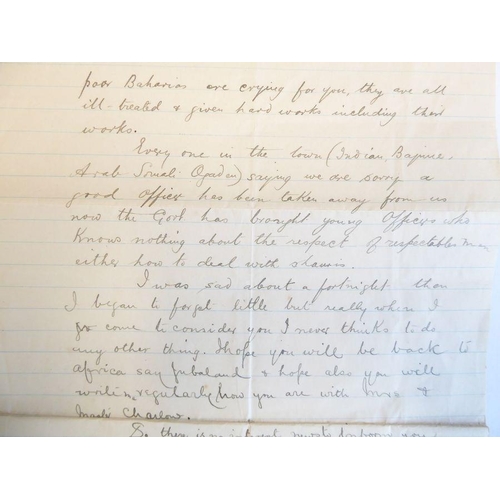 poor Baharias are crying for you, they are all
ill-treated & given hard works including their
works.
Every one in the town (Indian, Bajune,
Arab Smali Ogaden) saying we are sorry a
good Officer has been taken away from us
now the Govt has brought young Officer who
Knows nothing about the respect of respectables man
either how to deal with
I was sad about a fortnight than
I began to forget little but really when I
come to consider you I never thinks to do
any other thing. I hope you will be back to
africa say Jubaland & hope also you will
regularly how you are with Mrs &
Charlow.
S. there is no